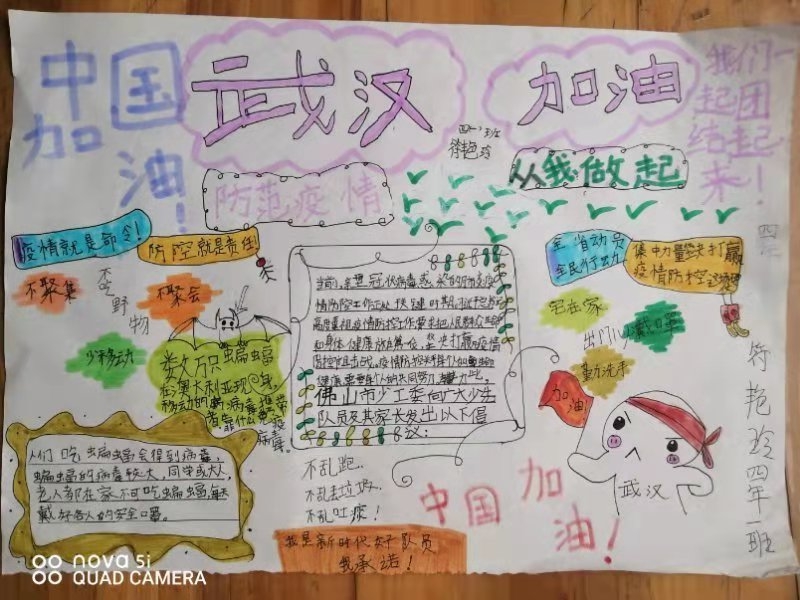 中国
加油!
武汉
加油
我们一
起团
结起
来!
四(一)班
符艳玲
从我做起
防范疫情
疫情就是命令!
防控就是责任
不聚集
不吃野物
不聚会
少移动
数万只蝙蝠
在澳大利亚现身,
移动的新病毒携带
者靠什么免疫
病毒.
人们吃蝙蝠会得到病毒,
蝙蝠的病毒较大,同学或大人,
老人都在家不可吃蝙蝠每天
戴好各人的安全口罩。
情防控工作正处关键时期,
高度重视疫情防控工作要求把人民群众生命
和身体健康放在第一位,坚决打赢疫情
佛山市少工委向广大少先
队员及其家长发出以下倡
议:
全省动员
全民行动
集中力量坚决打赢
疫情防控
宅在家
出门戴口罩
勤洗手
加油
武汉
符艳玲四年一班
不乱跑..
不乱丢垃圾..
不乱吐痰!
中国加
油!
我是新时代好队员
我承诺!
nova 5i
QUAD CAMERA